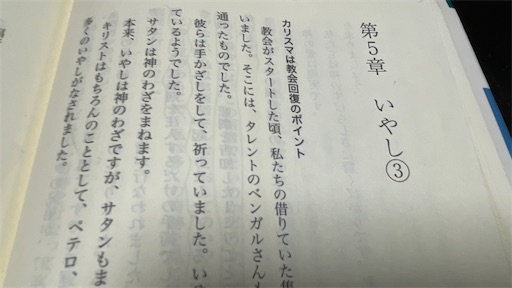 第5章 いやし③
カリスマは教会回復のポイント
教会がスタートした頃、私たちの借りていた
いました。そこには、タレントのベンガルさんも
通ったものでした。
彼らは手かざしをして、祈っていました。い
ているようでした。
サタンは神のわざをまねます。
本来、いやしは神のわざですが、サタンもま
キリストはもちろんのこととして、ペテロ、
多くのいやしがなされました。